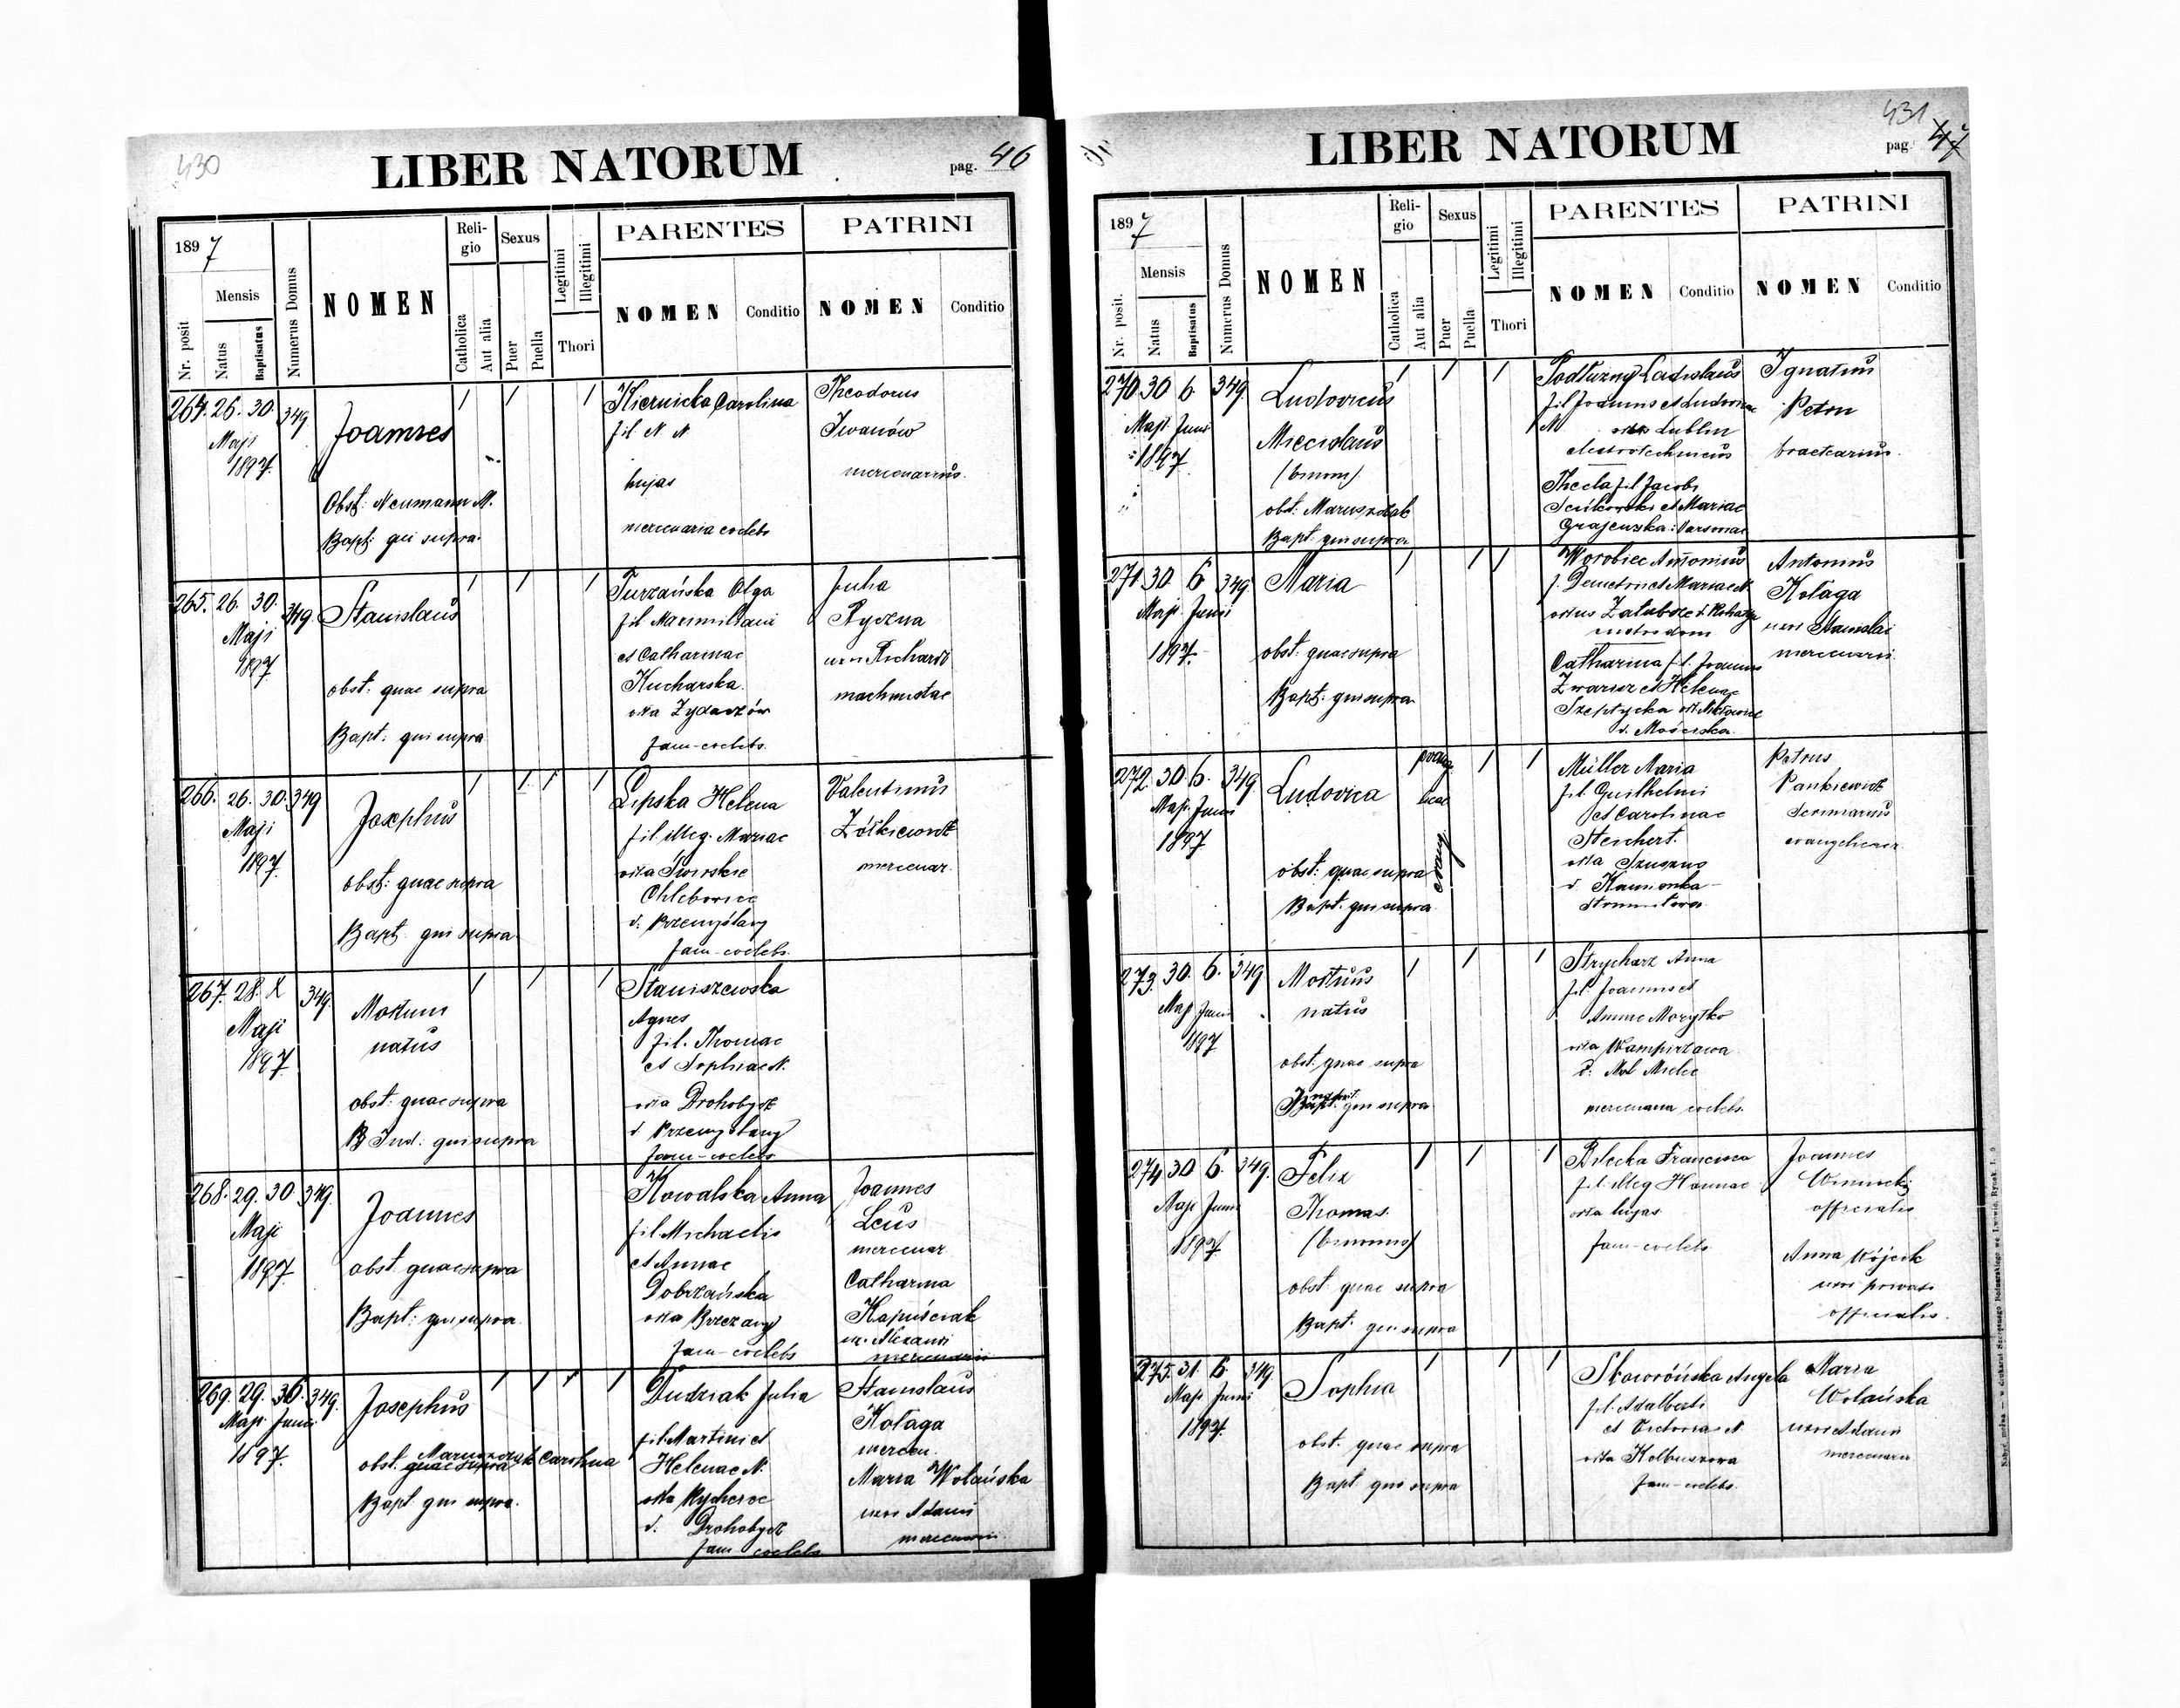 430
LIBER NATORUM
pag. 46
1897
Mensis
Nr. posit
Natus
Baptisatus
Numerus Domus
NOMEN
Reli-
gio
Catholica
Aut alia
Sexus
Puer
Puella
Legitimi
Illegitimi
Thori
PARENTES
NOMEN
Conditio
PATRINI
NOMEN
Conditio
264. 26. 30. 349
Maji
1897.
Joannes
Obst: Neumann M.
Bapt: qui supra.
Kiernicka Carolina
fil. N. N.
hujas
mercenaria coelebs
Theodorus
Iwanów
mercenarius.
265. 26. 30. 349.
Maji
1897
Stanislaus
obst: quae supra
Bapt: qui supra
Turzańska Olga
fil Maximiliani
et Catharinae
Kucharska.
orta Zydaczów
fam-coelebs.
Julia
Ryczna
uxor Richardi
machinistae
266. 26. 30. 349
Maji
1897.
Josephus
obst: quae supra
Bapt. qui supra
Lipska Helena
fil. illeg. Mariae
orta Swirskie
Chlebowice
d. Przemyślany
fam-coelebs.
Valentinus
mercenar.
267. 28. X 349.
Maji
1897
Mortuus
natus
obst: quae supra
qui supra
Staniszewska
Agnes
fil. Thomae
et Sophiae N.
orta Drohobycz
d Przemyślany
fam-coelebs
268. 29. 30 349.
Maji
1897.
Joannes
obst. quae supra
Bapt: qui supra
Kowalska Anna
fil Michaelis
et Annae
Dobrzańska
orta Brzezany
fam-coelebs
Joannes
Leus
mercenar
Catharina
Kapuściak
mercenarii
269. 29. 30. 349.
Maji Junii
1897.
Josephus
Maruszczak Carolina
obst. quae supra
Bapt qui supra.
Dudziak Julia
fil Martini et
Helenae N.
orta Rychcice
d. Drohobycz
fam coelebs
Stanislaus
Kołaga
mercen.
Maria Wolańska
uxor Adami
mercenarii
431
LIBER NATORUM
pag. 47
1897
Mensis
Nr. posit.
Natus
Baptisatus
Numerus Domus
NOMEN
Reli-
gio
Catholica
Aut alia
Sexus
Puer
Puella
Legitimi
Illegitimi
Thori
PARENTES
NOMEN
Conditio
PATRINI
NOMEN
Conditio
270. 30 6. 349.
Maji Junii
1897
Ludovicus
Miecislaus
(binom).
obst: Maruszczak
Bapt. qui supra
Podłużny Ladislaus
fil Joannis et Ludovicae
N. Lublin
electrotechnicus
Thecla fil Jacobi
et Mariae
Grajewska: Varsoviae
Ignatius
Petru
271. 30 6 349.
Maji Junii
1897.
Maria
obst: quae supra
Bapt: qui supra
Worobiec Antonius
f. Demetrii et Mariae N.
ortus
Catharina fil. Joannis
Zwarisz et Helenae
Szeptycka
d. Mościska.
Antonius
Kołaga
Stanislai
mercenarii
272. 30. 6. 349.
Maji Junii
1897
Ludovica
evang
obst. quae supra
Bapt. qui supra
Müller Maria
fil. Guilhelmi
et Carolinae
Steichert.
orta
d. Kamionka-
Strumilowa
Petrus
Pankiewicz
evangelicus
273. 30. 6. 349
Maji Junii
1897
Mortuus
natus
obst. quae supra
qui supra
Strycharz Anna
fil Joannis et
Annae Morytko
orta Wampierzowa
d. Mielec
mercenaria coelebs.
274 30 6. 349.
Maji Junii
1897
Felix
Thomas.
(binomis)
obst. quae supra
Bapt. qui supra
Bilecka Francisca
fil. illeg Hannae
orta hujas
fam-coelebs
Joannes
Winnicki
officialis
Anna Wójcik
uxor privati
officialis.
275. 31. 6. 349
Maji Junii
1897.
Sophia
obst. quae supra
Bapt. qui supra
Skowrońska Angela
fil. Adalberti
et Victoriae N.
orta Kolbuszowa
fam-coelebs.
Maria
Wolańska
uxor Adami
mercenarii